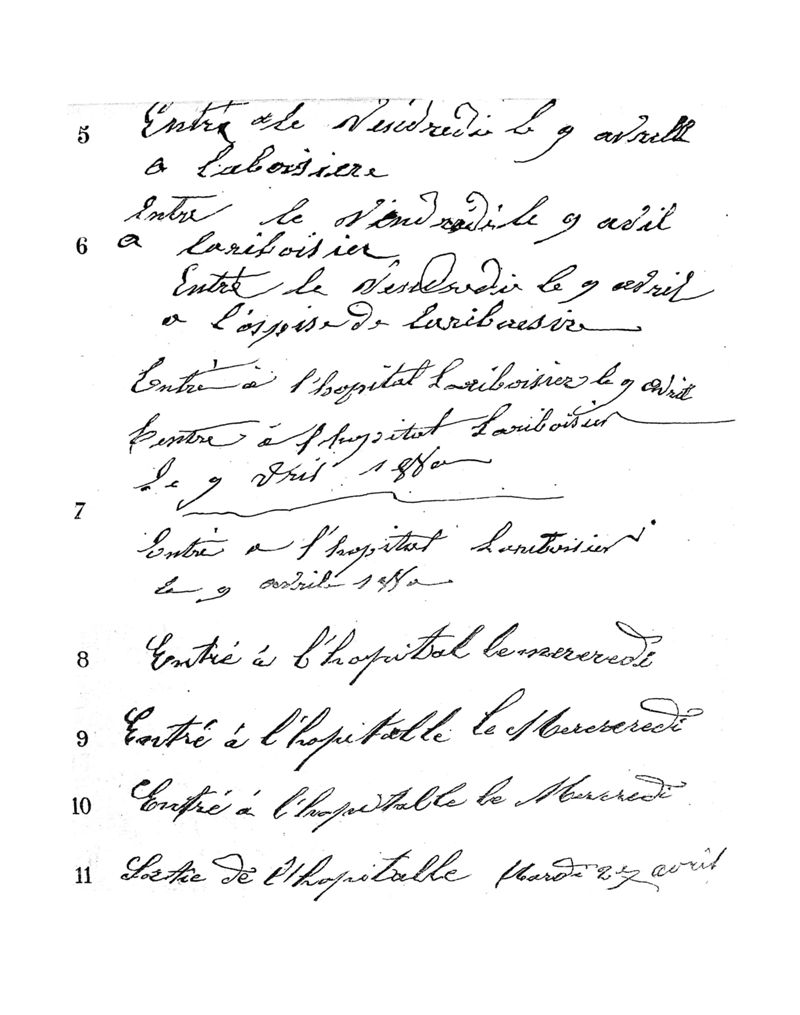 5 Entré le Vendredie le 9 avrill
a Laboisiere
Entre le Vendredi le 9 avil
6 a Lariboisier
Entré le Vendredie le 9 avril
a l'ospise de Lariboesire
Entré à l'hopital Lariboisier le 9 avril
entre à l'hopital Lariboisier
Le 9 vril 1880
7
Entré a l'hopital Lariboisier
le 9 avrile 1880
8 Entré à l'hopital le mercredi
9 Entré à l'hopitalle le Mercreredi
10 Entré à l'hopitalle le Mercredi
11 Sortie de l'hopitalle Mardi 27 avril